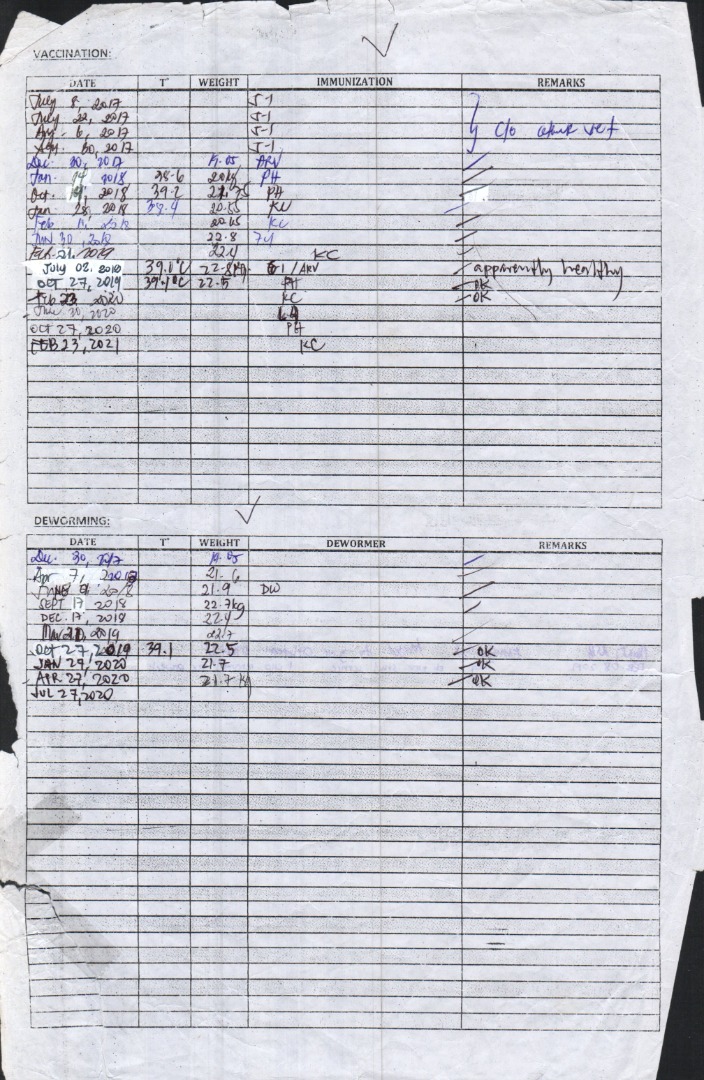 VACCINATION:
DATE T° WEIGHT IMMUNIZATION REMARKS
July 8, 2017 5-1
July 22, 2017 5-1
Aug. 6, 2017 5-1
Aug. 30, 2017 5-1
c/o other vet
Dec. 30, 2017 19.05 ARV
Jan. 14 2018 38.6 PH
Oct. 19, 2018 39.2 PH
Jan. 28, 2018 39.4 20.55 KC
Feb 20.65 KC
Nov 30, 2018 22.8
Feb. 21, 2019 22.4 KC
July 02. 2019 39.1°C 22.8kg. 61/ARV apparently healthy
OCT 27, 2019 39.1°C 22.5 PH OK
Feb 23 2020 KC OK
June 30, 2020
OCT 27, 2020 PH
FEB 23, 2021 KC
DEWORMING:
DATE T° WEIGHT DEWORMER REMARKS
Dec. 30, 2017 19.05
Apr 7, 2018 21.6
2018 21.9 DW
SEPT 17 2018 22.7kg
DEC. 17, 2018 22.4
Mar 21, 2019 22.7
OCT 27, 2019 39.1 22.5 OK
JAN 27, 2020 21.7 OK
APR 27, 2020 21.7 Kg OK
JUL 27, 2020